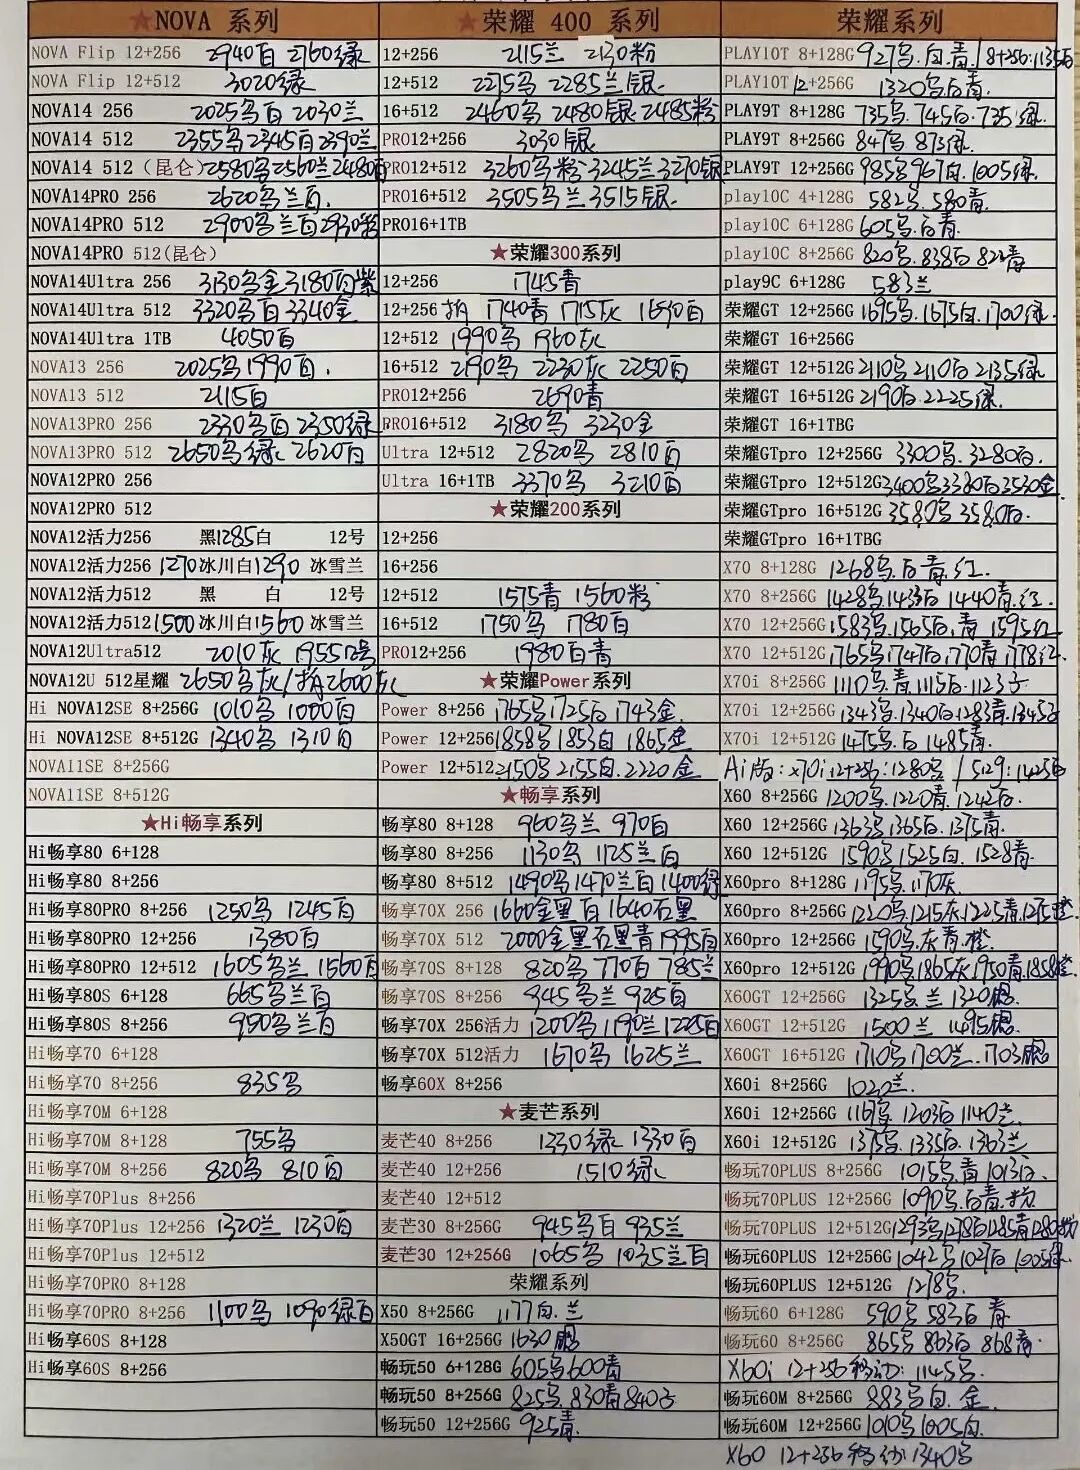 ★NOVA 系列
NOVA Flip 12+256 2940白 2760绿
NOVA Flip 12+512 3020绿
NOVA14 256 2025鸟白 2030兰
NOVA14 512 2355鸟2345百2390兰
NOVA14 512（昆仑）2580鸟2560兰2480百
NOVA14PRO 256 2620鸟兰百.
NOVA14PRO 512 2900鸟兰百2930粉
NOVA14PRO 512(昆仑)
NOVA14Ultra 256 3130鸟金3180白紫
NOVA14Ultra 512 3320鸟百3340金
NOVA14Ultra 1TB 4050百
NOVA13 256 2025鸟1990百.
NOVA13 512 2115百
NOVA13PRO 256 2330鸟百2350绿
NOVA13PRO 512 2650鸟绿2620百
NOVA12PRO 256
NOVA12PRO 512
NOVA12活力256 黑1285白 12号
NOVA12活力256 1270冰川白1290 冰雪兰
NOVA12活力512 黑 白 12号
NOVA12活力512 1500冰川白1560 冰雪兰
NOVA12Ultra512 2010灰 1955 12号
NOVA12U 512星耀 2650鸟灰/拍2600灰
Hi NOVA12SE 8+256G 1010鸟 1000百
Hi NOVA12SE 8+512G 1340鸟 1310百
NOVA11SE 8+256G
NOVA11SE 8+512G
★Hi畅享系列
Hi畅享80 6+128
Hi畅享80 8+256
Hi畅享80PRO 8+256 1250鸟 1245百
Hi畅享80PRO 12+256 1380百
Hi畅享80PRO 12+512 1605鸟兰 1560百
Hi畅享80S 6+128 665鸟兰百
Hi畅享80S 8+256 950鸟兰百
Hi畅享70 6+128
Hi畅享70 8+256 835鸟
Hi畅享70M 6+128
Hi畅享70M 8+128 755鸟
Hi畅享70M 8+256 820鸟 810百
Hi畅享70Plus 8+256
Hi畅享70Plus 12+256 1320兰 1230百
Hi畅享70Plus 12+512
Hi畅享70PRO 8+128
Hi畅享70PRO 8+256 1100鸟 1090绿百
Hi畅享60S 8+128
Hi畅享60S 8+256
★荣耀 400 系列
12+256 2115兰 2130粉
12+512 2275鸟 2285兰银
16+512 2460鸟 2480银 2485粉
PRO12+256 3030银
PRO12+512 3260鸟粉3245兰3270银
PRO16+512 3505鸟兰3515银.
PRO16+1TB
★荣耀300系列
12+256 1745青
12+256 拍 1740青 1715灰 1690百
12+512 1990鸟 1960灰
16+512 2190鸟 2230灰 2250百
PRO12+256 2690青
PRO16+512 3180鸟 3230金
Ultra 12+512 2820鸟 2810百
Ultra 16+1TB 3370鸟 3210百
★荣耀200系列
12+256
16+256
12+512 1575青 1560粉
16+512 1750鸟 1780百
PRO12+256 1980百青
★荣耀Power系列
Power 8+256 1765鸟1725百 1743金.
Power 12+256 1858鸟1853白 1865金
Power 12+512 2150鸟 2155白.2220金
★畅享系列
畅享80 8+128 960鸟兰 970百
畅享80 8+256 1130鸟 1125兰百
畅享80 8+512 1490鸟1470兰百1400绿
畅享70X 256 1660金黑百 1640石黑
畅享70X 512 2000金黑石黑青1995百
畅享70S 8+128 820鸟 770百 785兰
畅享70S 8+256 945鸟兰 925百
畅享70X 256活力 1200鸟1190兰1225百
畅享70X 512活力 1670鸟 1625兰
畅享60X 8+256
★麦芒系列
麦芒40 8+256 1230绿 1330百
麦芒40 12+256 1510绿
麦芒40 12+512
麦芒30 8+256G 945鸟百 935兰
麦芒30 12+256G 1065鸟 1035兰百
荣耀系列
X50 8+256G 1177白.兰
X50GT 16+256G 1630
畅玩50 6+128G 605鸟600青
畅玩50 8+256G 825鸟.830青840
畅玩50 12+256G 925青.
荣耀系列
PLAY10T 8+128G 927鸟.白.青./8+256:1135百
PLAY10T 12+256G 1320鸟百青.
PLAY9T 8+128G 735鸟 745百.735绿.
PLAY9T 8+256G 847鸟 873绿.
PLAY9T 12+256G 985鸟967白.1005绿.
play10C 4+128G 582鸟.580青.
play10C 6+128G 605鸟.百青.
play10C 8+256G 820鸟.838百 青
play9C 6+128G 583兰
荣耀GT 12+256G 1695鸟.1675白.1700绿.
荣耀GT 16+256G
荣耀GT 12+512G 2110鸟2110百2135绿
荣耀GT 16+512G 2190百.2225绿.
荣耀GT 16+1TBG
荣耀GTpro 12+256G 3300鸟.3280百.
荣耀GTpro 12+512G 3400鸟3380百3530金
荣耀GTpro 16+512G 3580鸟 3580百.
荣耀GTpro 16+1TBG
X70 8+128G 1268鸟.百青.红.
X70 8+256G 1428鸟.1433百1440青.红.
X70 12+256G 1583鸟.1565百.青 1595红
X70 12+512G 1765鸟.1747百.1770青.1778红
X70i 8+256G 1110鸟.青.1115百.1123
X70i 12+256G 1343鸟.1340百1283青.1345
X70i 12+512G 1475鸟.百 1485青.
Ai版:X70i 12+256:1280鸟 /512g:1425百
X60 8+256G 1200鸟.1220青.1242百.
X60 12+256G 1363鸟1365百.1375青.
X60 12+512G 1590鸟1525白.1528青
X60pro 8+128G 1195鸟.1170灰
X60pro 8+256G 1220鸟.1215灰1225青.1275橙
X60pro 12+256G 1590鸟.灰青.橙.
X60pro 12+512G 1990鸟1865灰1950青.1858橙
X60GT 12+256G 1325鸟兰 1320
X60GT 12+512G 1500兰 1495
X60GT 16+512G 1710鸟1700兰.1703
X60i 8+256G 1020兰.
X60i 12+256G 1167鸟 1203百1140兰
X60i 12+512G 1375鸟.1335百.1363兰
畅玩70PLUS 8+256G 1015鸟.青1013百.
畅玩70PLUS 12+256G 1090鸟.百青.粉
畅玩70PLUS 12+512G 1293鸟1278百1285青1280粉
畅玩60PLUS 12+256G 1042鸟1029百 1005绿.
畅玩60PLUS 12+512G 1218鸟.
畅玩60 6+128G 590鸟 583百 青
畅玩60 8+256G 865鸟 863百 868青.
X60i 12+256移动: 1145鸟.
畅玩60M 8+256G 883鸟白.金.
畅玩60M 12+256G 1010鸟1005白.
X60 12+256移动 1340鸟